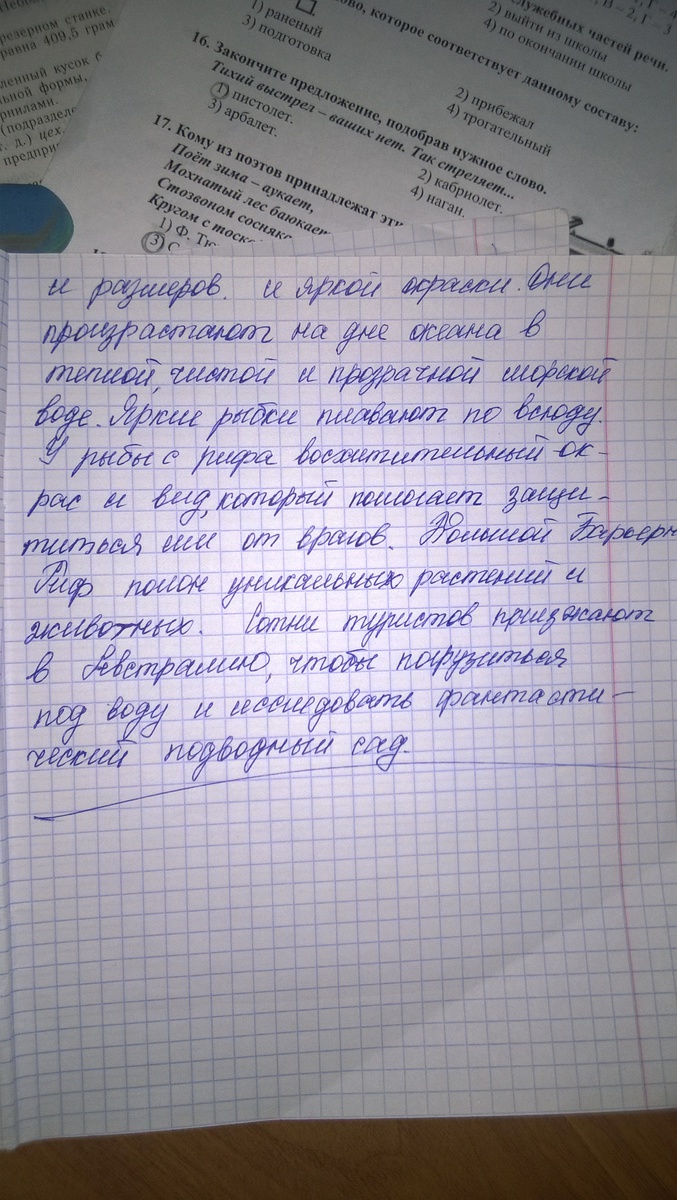 Небо
резерном станке.
равна 409,5 грам
ленный кусок б
ьной формы,
рнилами.
(подразделе
т. д.) цех.
предпри
В – 2, Г – 3
служебных частей речи.
ово, которое соответствует данному составу:
1) раненый
2) выйти из школы
3) подготовка
4) по окончании школы
2) прибежал
4) трогательный
16. Закончите предложение, подобрав нужное слово.
Тихий выстрел – ваших нет. Так стреляет...
1) пистолет.
2) кабриолет.
3) арбалет.
4) наган.
17. Кому из поэтов принадлежат эти
Поёт зима – аукает,
Мохнатый лес баюкает
Стозвоном сосняка
Кругом с тоско
1) Ф. Тю
3) С
и размеров. и яркой окраски. Они
произрастают на дне океана в
теплой, чистой и прозрачной морской
воде. Яркие рыбки плавают по всюду.
У рыбы с рифа восхитительный ок-
рас и вид, который помогает защи-
титься им от врагов. Большой Барьерн
Риф полон уникальных растений и
животных. Сотни туристов приезжают
в Австралию, чтобы погрузиться
под воду и исследовать фантасти-
ческий подводный сад.